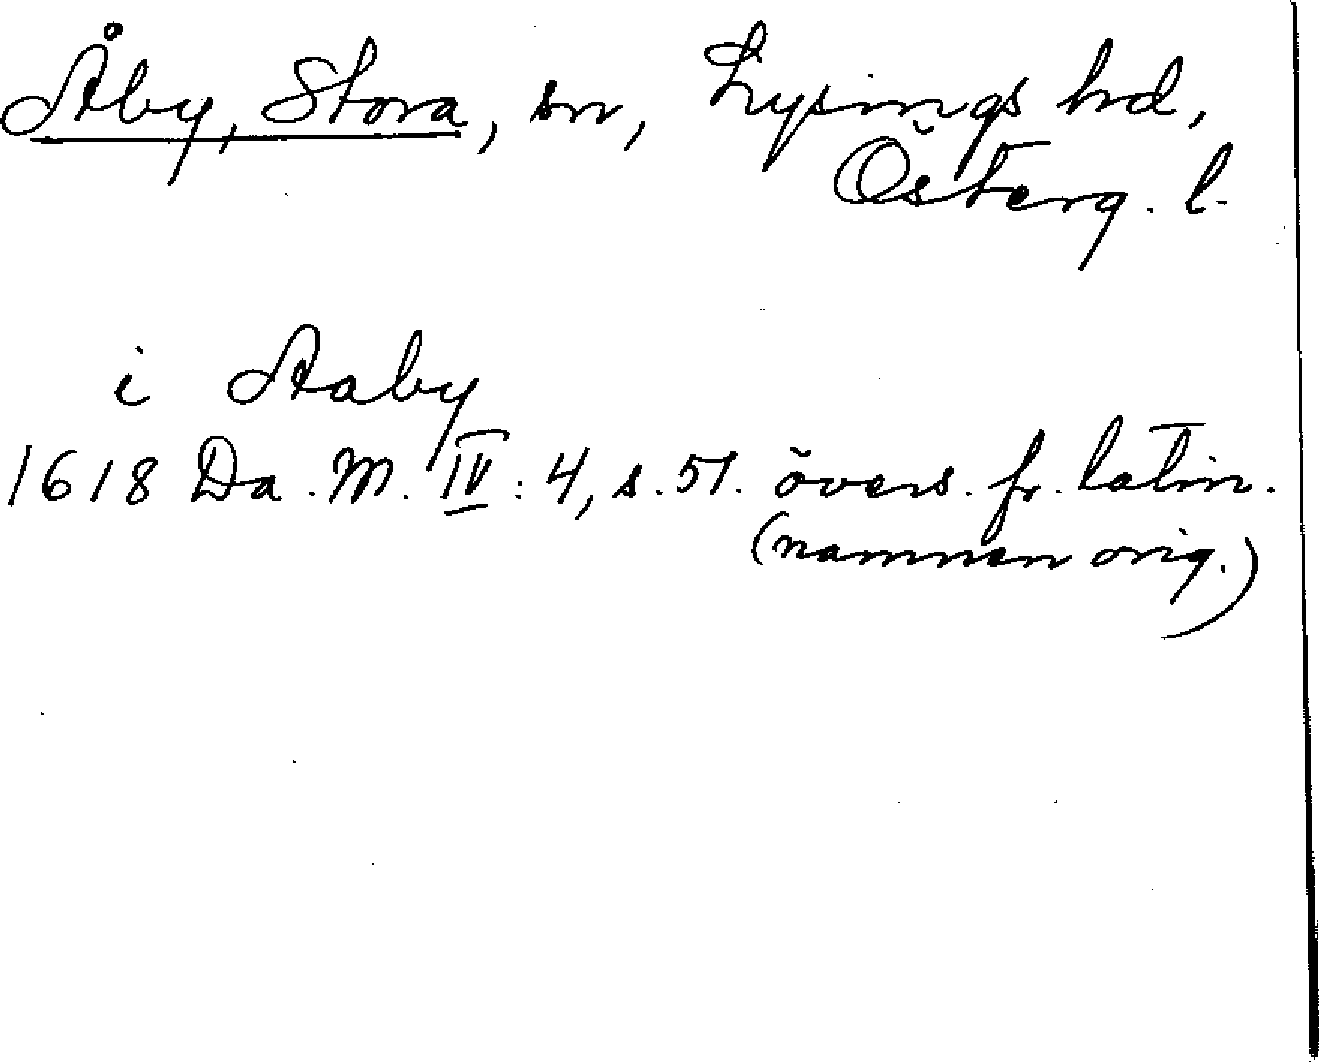 Åby, Stora, sn, Lysings hd,
Österg. l.
i Aaby
1618 Da. M. IV: 4, s. 51. övers. fr. latin.
(namnen orig.)